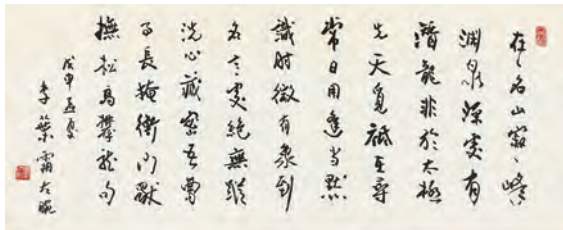 在〻名山寂〻峰
淵泉深處有
潛龍非於太極
先天覓祗在尋
常日用逢當默
識時微有象到
名言處絕無蹤
洗心藏密吾曹
事長掩衡門
撫松高攀龍句
戊申孟夏
李葉霜左腕